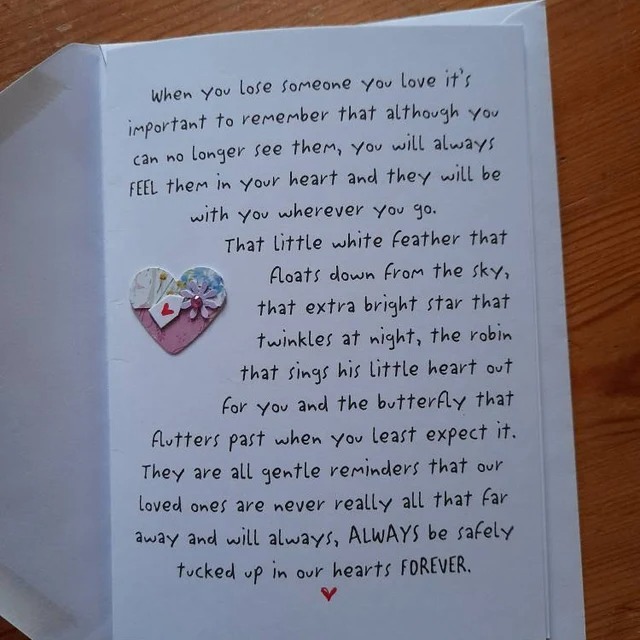 When you lose someone you love it's
important to remember that although you
can no longer see them, you will always
FEEL them in your heart and they will be
with you wherever you go.
That little white feather that
floats down from the sky,
that extra bright star that
twinkles at night, the robin
that sings his little heart out
for you and the butterfly that
flutters past when you least expect it.
They are all gentle reminders that our
loved ones are never really all that far
away and will always, ALWAYS be safely
tucked up in our hearts FOREVER.